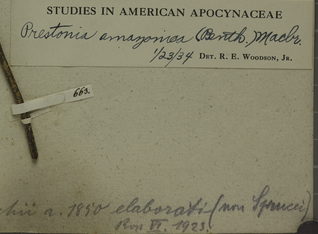 STUDIES IN AMERICAN APOCYNACEAE
Prestonia amazonica (Benth.) Macbr.
1/23/34 DET. R. E. WOODSON, JR.
663.
a. 1850 elaborati (non Sprucei)
VI. 1923.